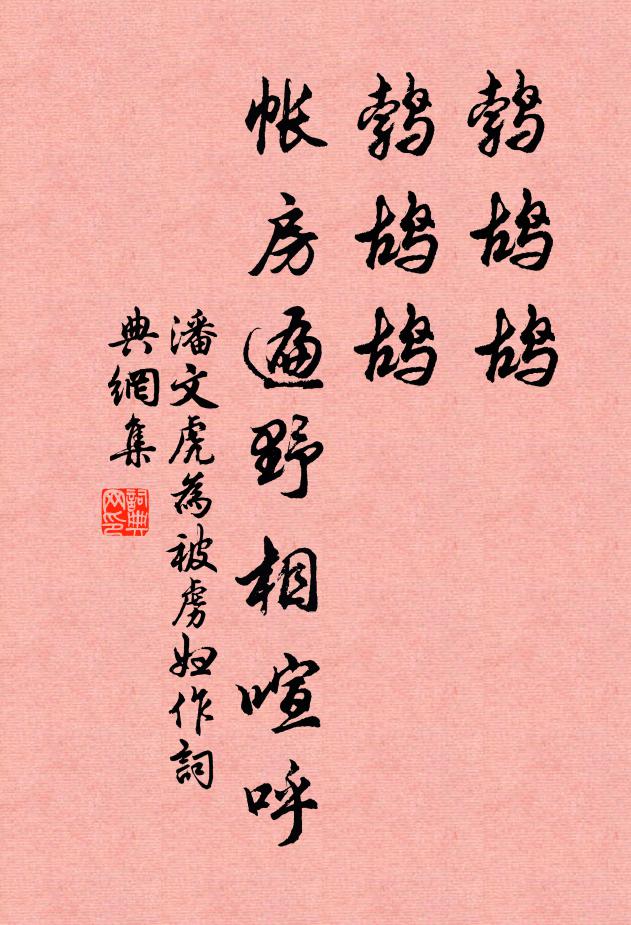 鹁鸪鸪
鹁鸪鸪
帐房遍野相喧呼
潘文虎為被虜婦作詞
典網集
詞典網印